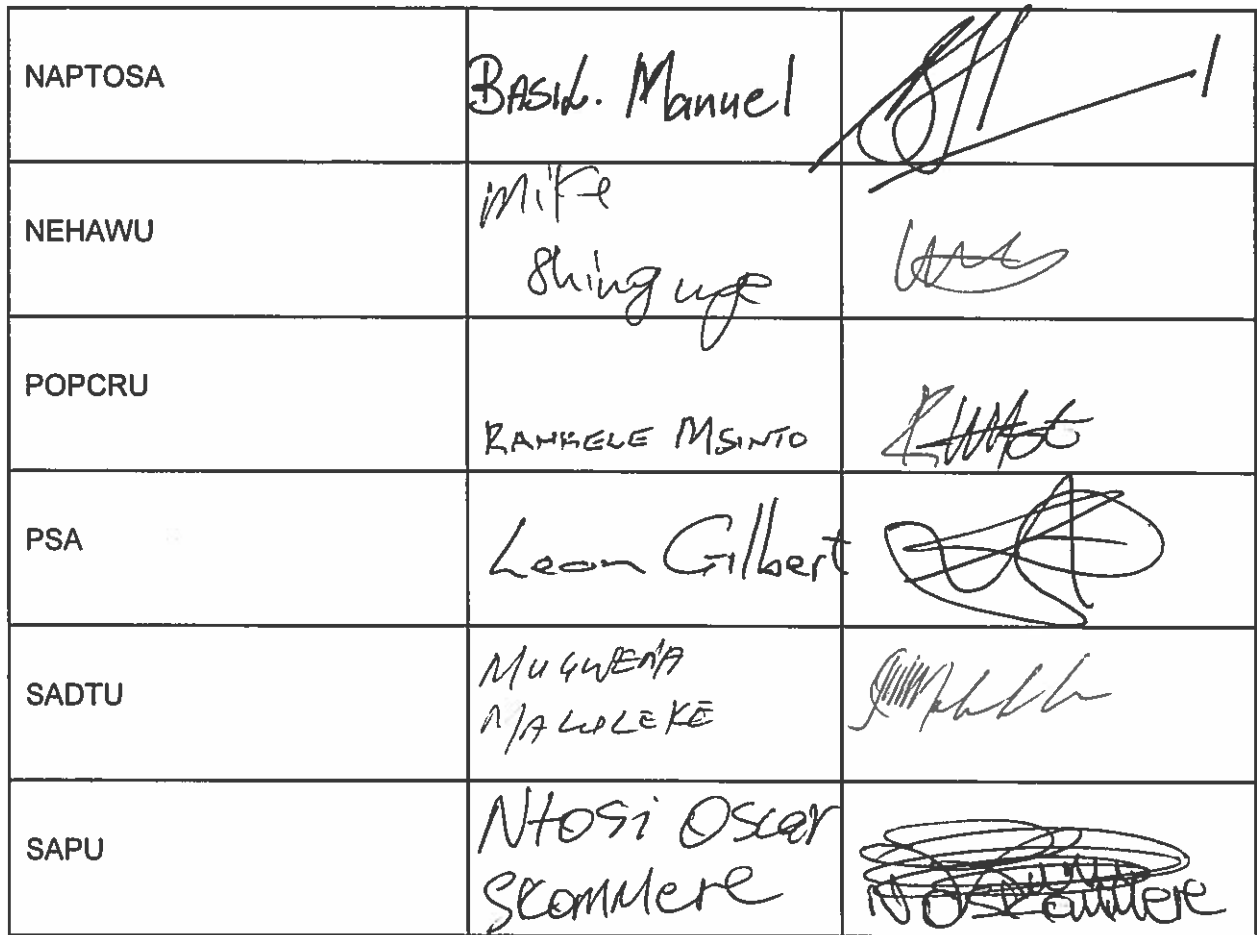 NAPTOSA
BASIL. Manuel
NEHAWU
Mike
Shingange
POPCRU
MSINTO
PSA
Leon Gilbert
SADTU
MUGWENA
MALULEKE
SAPU
Ntosi Oscar
Skommere
NOSkommere